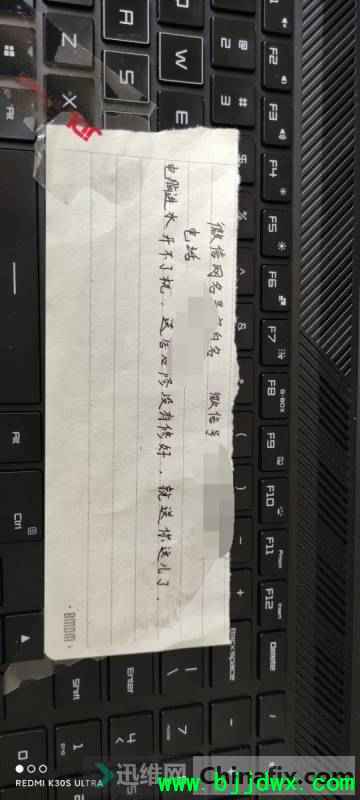 微信网名 白名 微信号
电话
电脑进水开不了机、送 没有修好、就送你这儿了.
F1
F2
F3
F4
F5
F6
F7
F8
G-BOX
F9
F10
F11
F12
Delete
Backspace
Enter
Shift
Ctrl
Alt
Z
X
A
S
W
E
2
3
1
4
7
0
REDMI K30S ULTRA
迅维网 Chinafix.com
www.bjjdwx.com